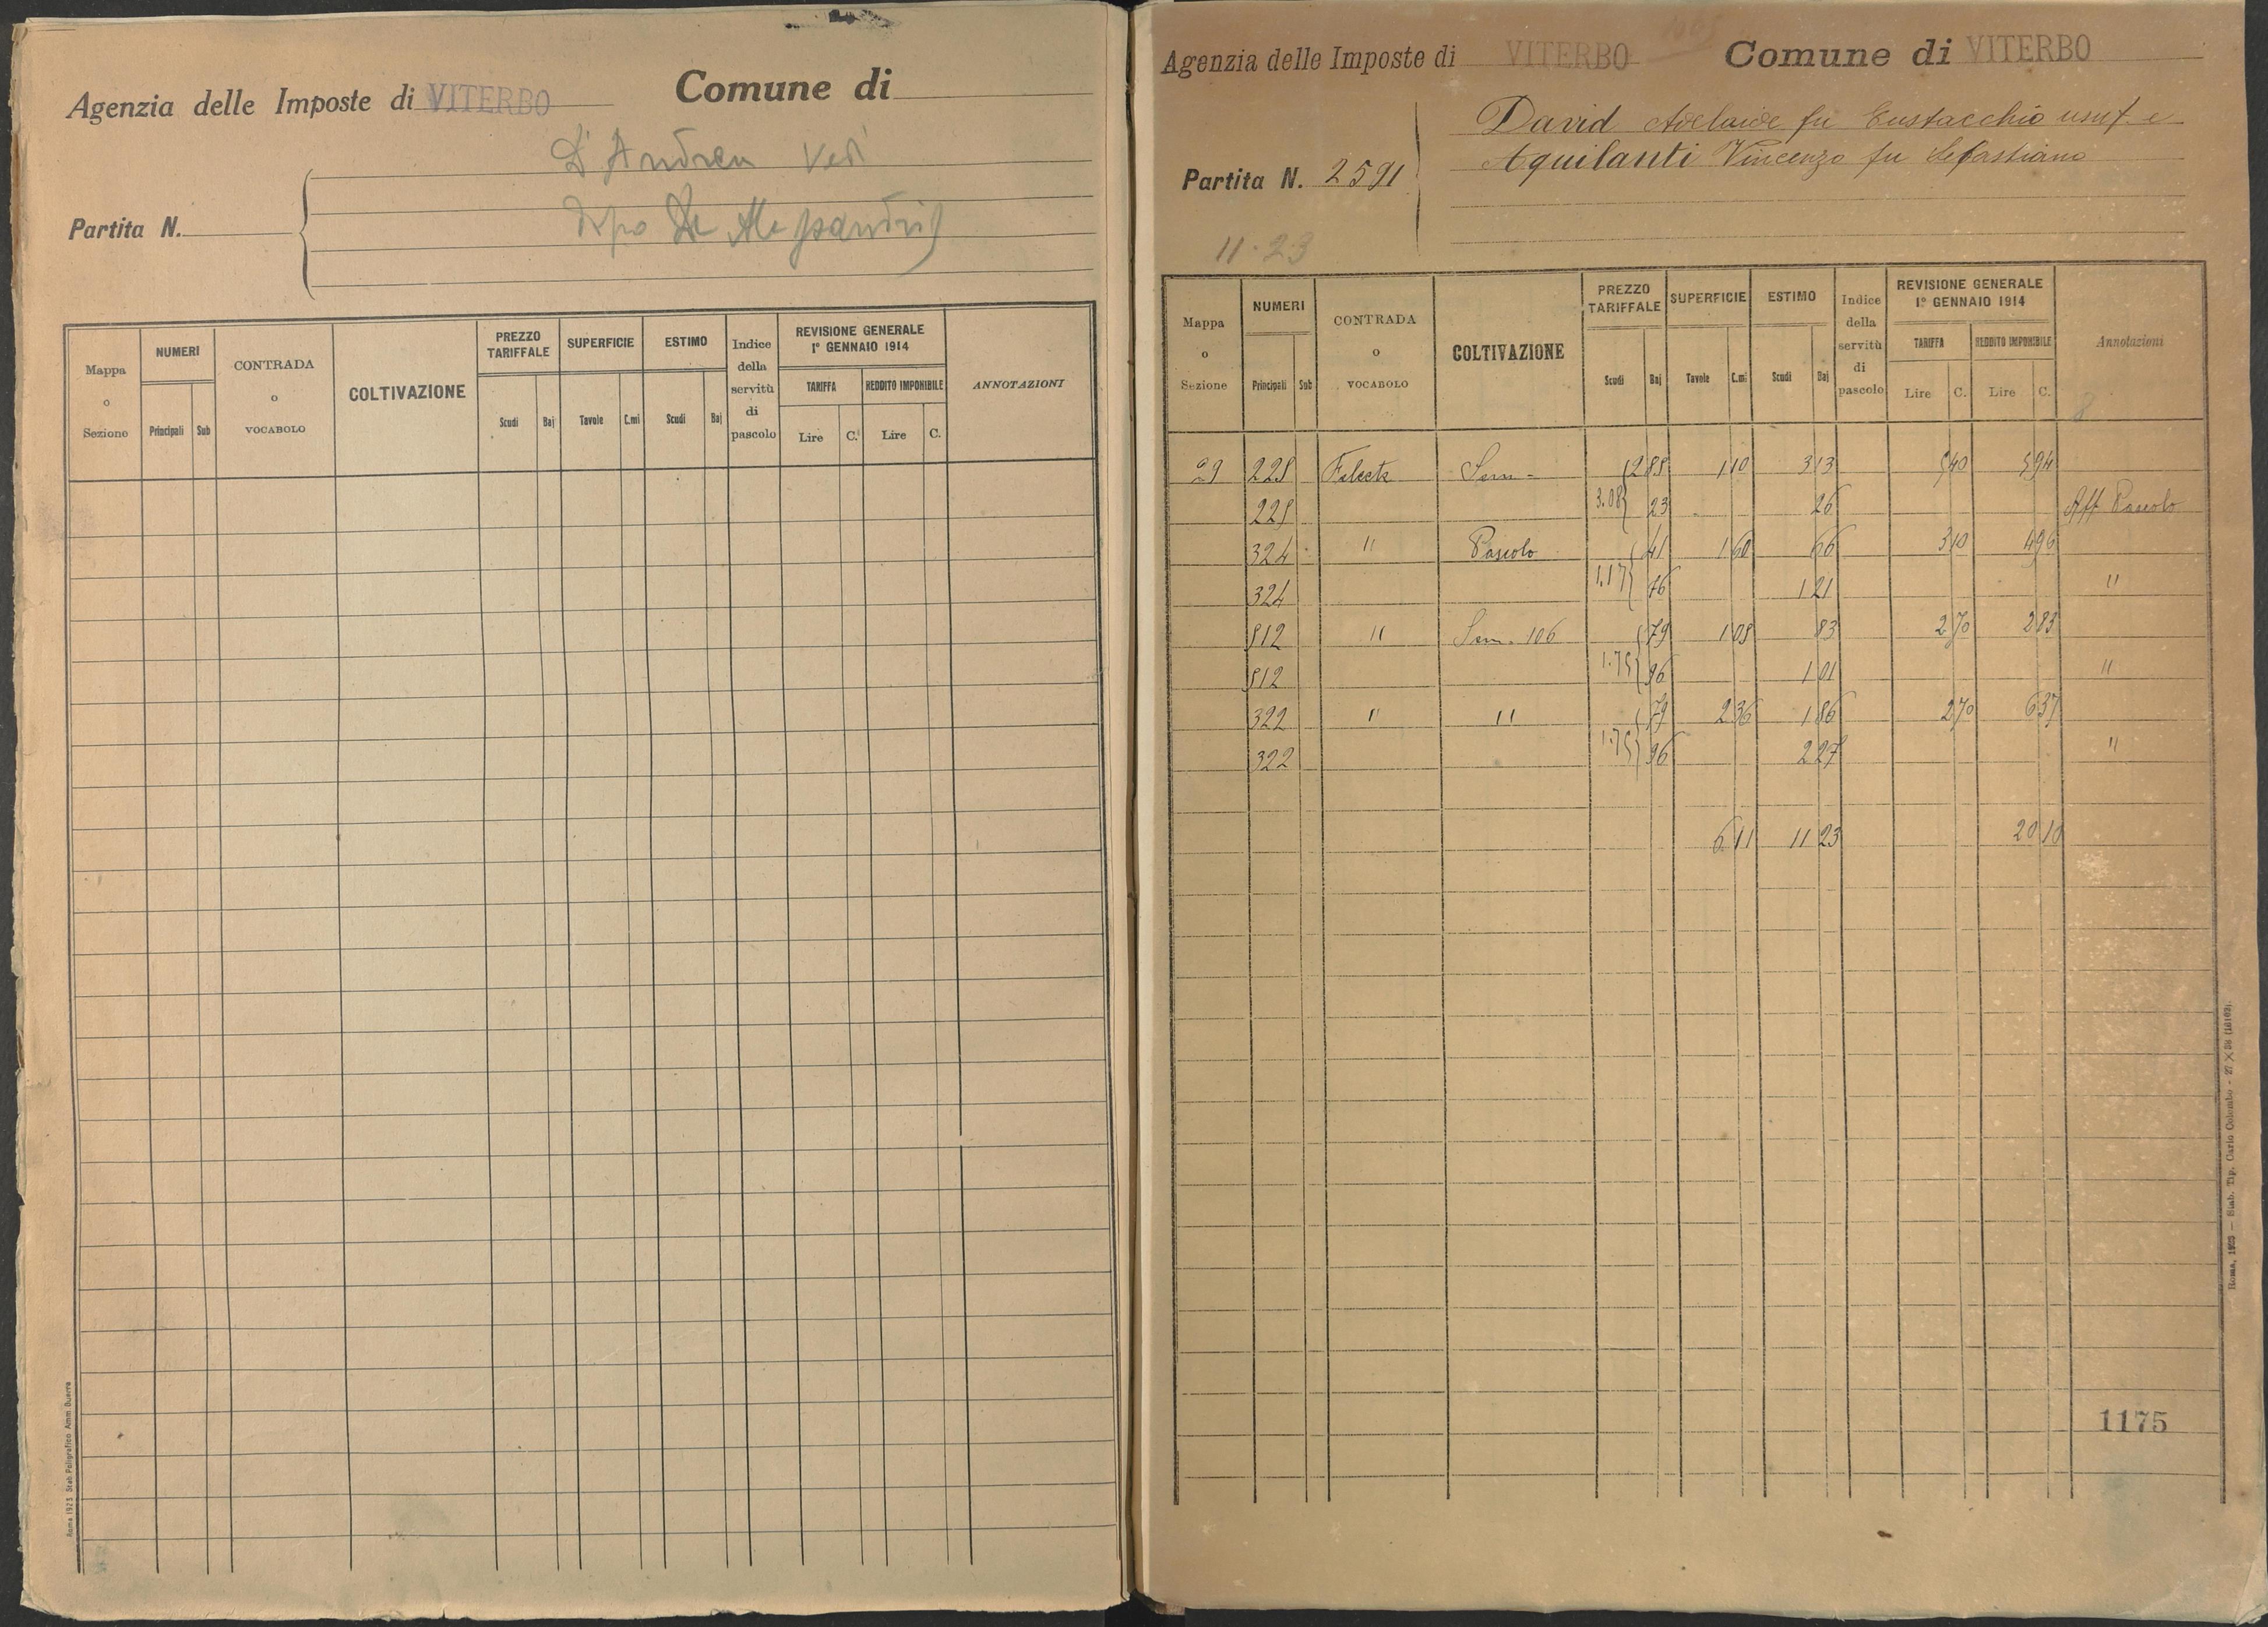 Agenzia delle Imposte di VITERBO Comune di
D'Andrea Vedi
dopo De Alessandris
Partita N.
Mappa o Sezione
NUMERI
Principali Sub
CONTRADA o VOCABOLO
COLTIVAZIONE
PREZZO TARIFFALE
Scudi Baj
SUPERFICIE
Tavole C.mi
ESTIMO
Scudi Baj
Indice della servitù di pascolo
REVISIONE GENERALE
1° GENNAIO 1914
TARIFFA REDDITO IMPONIBILE
Lire C. Lire C.
ANNOTAZIONI
Roma 1923 Stab. Poligrafico Amm. Guerra
Agenzia delle Imposte di VITERBO Comune di VITERBO
David Adelaide fu Eustacchio usuf. e
Aquilanti Vincenzo fu Sebastiano
Partita N. 2591
11-23
Mappa o Sezione
NUMERI
Principali Sub
CONTRADA o VOCABOLO
COLTIVAZIONE
PREZZO TARIFFALE
Scudi Baj
SUPERFICIE
Tavole C.mi
ESTIMO
Scudi Baj
Indice della servitù di pascolo
REVISIONE GENERALE
1° GENNAIO 1914
TARIFFA REDDITO IMPONIBILE
Lire C. Lire C.
Annotazioni
29 225 Sem - 2 85 1 10 3 13 5 40 5 94
225 3.08 23 26 Aff Pascolo
324 " Pascolo 41 1 60 66 3 10 4 96
324 1.17 76 1 21 "
512 " Sem. 106 79 1 05 83 2 70 2 83
512 1.75 96 1 01 "
322 " " 79 2 36 1 86 2 70 6 37
322 1.75 96 2 27 "
6 11 11 23 20 10
1175
Roma, 1925 — Stab. Tip. Carlo Colombo - 27 X 38 (16162).